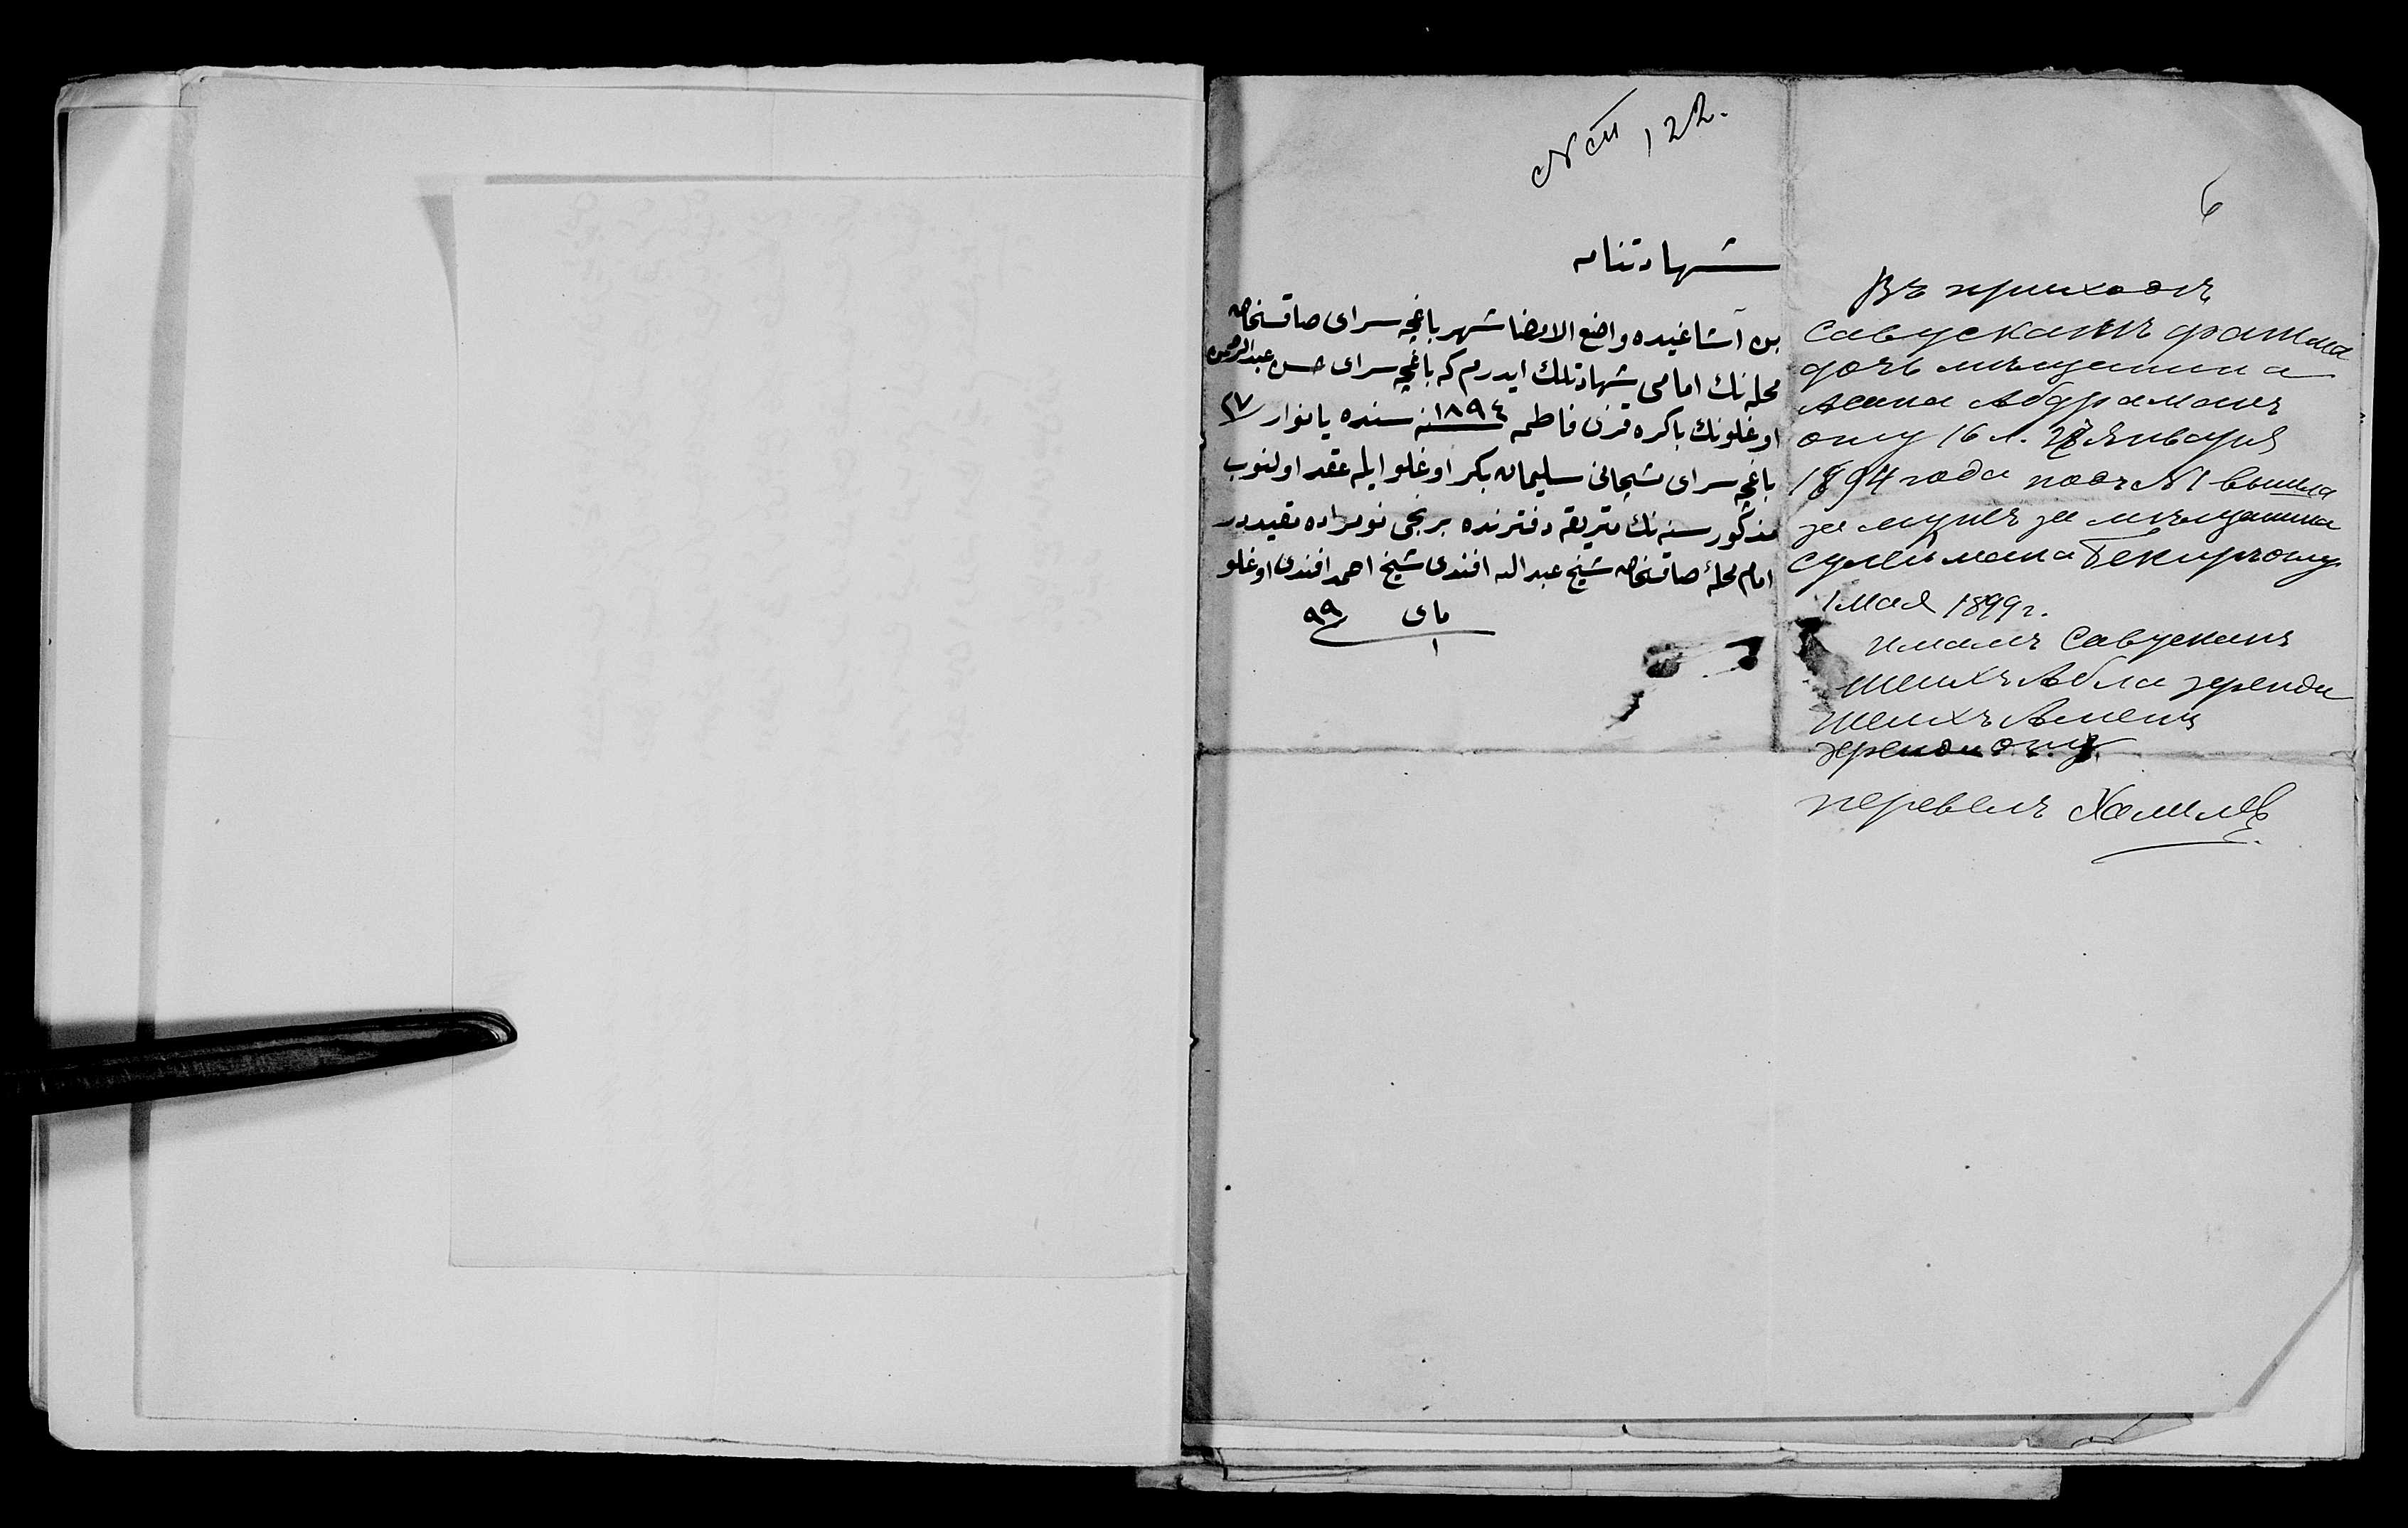 № 122.
6
شهادتنامه
بن آشاغیده واضع الامضا شهر باغچه سرای صاقسخان
محله نك امامی شهادتلك ایدرم كه باغچه سرای حسن عبدالرحمن
اوغلونك باكره قزی فاطمه ١٨٩٤ نه سنده یانوار ٢٧
باغچه سرای مشچانی سلیمان بكر اوغلو ایله عقد اولنوب
مذكور سنه نك متریقه دفترنده برنجی نومراده مقیددر
امام محلهٔ صاقسخان شیخ عبدالله افندی شیخ احمد افندی اوغلو
مای ٩٩
١
Въ приходѣ
Савускань Фатма
дочь мѣщанина
Асана Абдраманъ
оглу 16 л. 27 Января
1894 года подъ №1 вышла
за мужъ за мѣщанина
Сулеймана Бекиръ оглу
1 Мая 1899 г.
Имамъ Савусканъ
Шеихъ Абла эфенди
Шеихъ Аметъ
эфенди оглу
перевелъ